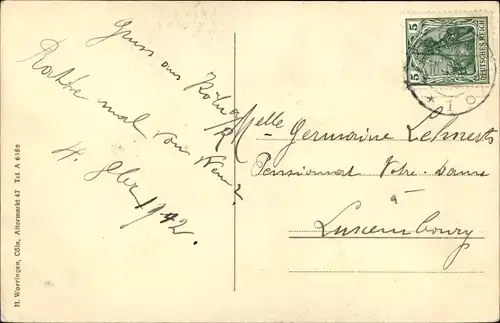 Gruss aus Köln a/R
Rathe mal von Wem?
4. 8ber 1912.
5 DEUTSCHES REICH 5
* 1 o
Melle Germaine
Pensionnat Notre-Dame
à
Luxembourg
H. Worringen, Cöln, Altermarkt 47 Tel A 6186